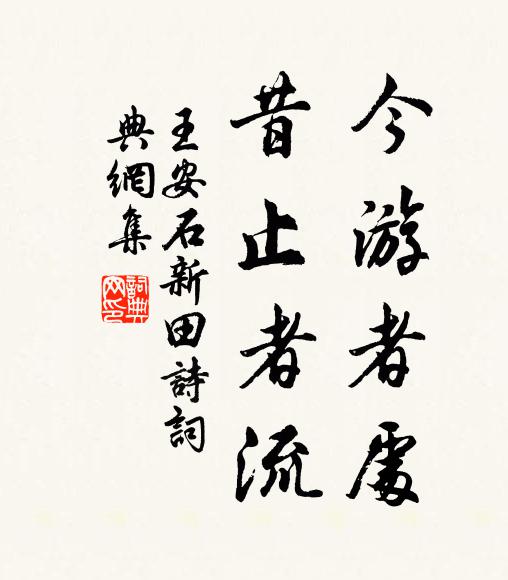 今游者處
昔止者流
王安石新田詩詞
典網集
詞典
网印